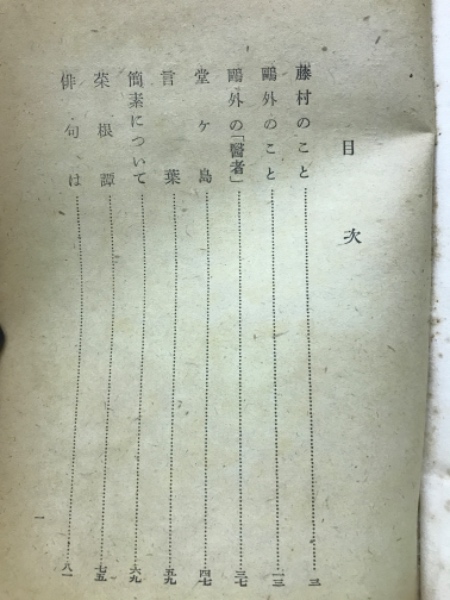 目次
藤村のこと……三
鷗外のこと……一三
鷗外の「醫者」……三七
堂ヶ島……四七
言葉……五九
簡素について……六九
菜根譚……七五
俳句は……八一
一